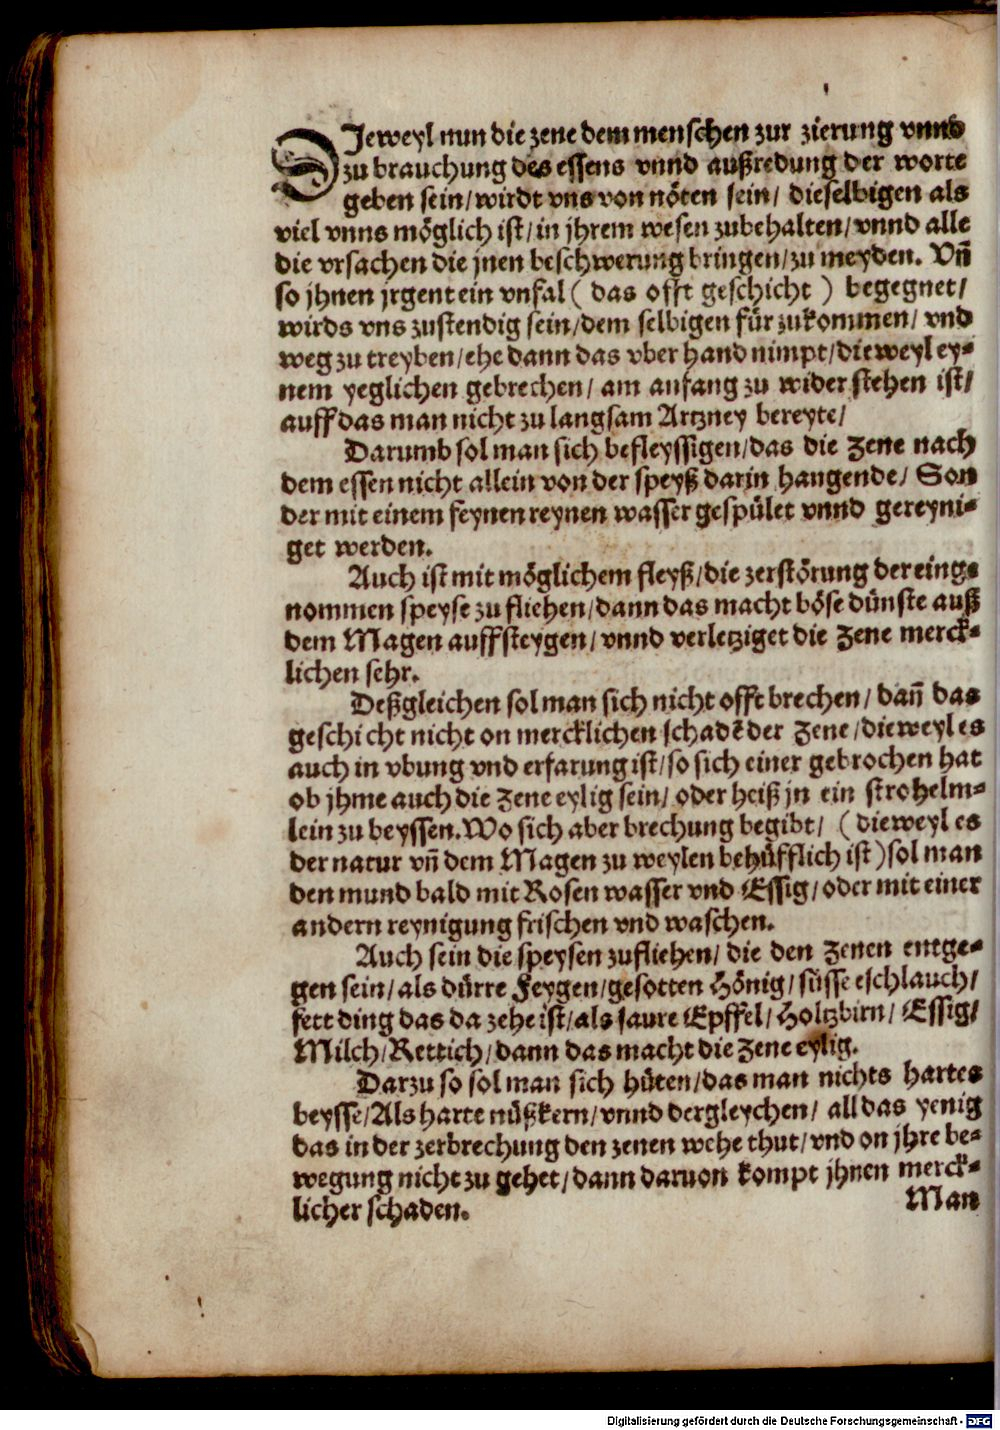 DJeweyl nun die zene dem menschen zur zierung vnnd
zu brauchung des essens vnnd außredung der worte
geben sein/ wirdt vns von nöten sein/ dieselbigen als
viel vnns möglich ist/ in jhrem wesen zubehalten/ vnnd alle
die vrsachen die jnen beschwerung bringen/ zu meyden. Vñ
so jhnen jrgent ein vnfal ( das offt geschicht ) begegnet/
wirds vns zustendig sein/ dem selbigen für zukommen/ vnd
weg zu treyben/ ehe dann das vber hand nimpt/ die weyl ey⸗
nem yeglichen gebrechen/ am anfang zu wider stehen ist/
auff das man nicht zu langsam Artzney bereyte/
Darumb sol man sich befleyssigen/ das die Zene nach
dem essen nicht allein von der speyß darin hangende/ Son
der mit einem feynen reynen wasser gespület vnnd gereyni⸗
get werden.
Auch ist mit möglichem fleyß/ die zerstörung der einge⸗
nommen speyse zu fliehen/ dann das macht böse dünste auß
dem Magen auffsteygen/ vnnd verletziget die Zene merck⸗
lichen sehr.
Deßgleichen sol man sich nicht offt brechen/ dañ das
geschicht nicht on mercklichen schadẽ der Zene/ die weyl es
auch in vbung vnd erfarung ist/ so sich einer gebrochen hat
ob jhme auch die Zene eylig sein/ oder heiß jn ein strohelm⸗
lein zu beyssen. Wo sich aber brechung begibt/ ( die weyl es
der natur vñ dem Magen zu weylen behüfflich ist ) sol man
den mund bald mit Rosen wasser vnd Essig/ oder mit einer
andern reynigung frischen vnd waschen.
Auch sein die speysen zufliehen/ die den Zenen entge⸗
gen sein/ als dürre Feygen/ gesotten Hönig/ süsse eschlauch/
fett ding das da zehe ist/ als saure Epffel/ Holtzbirn/ Essig/
Milch/ Rettich/ dann das macht die Zene eylig.
Darzu so sol man sich hüten/ das man nichts hartes
beysse/ Als harte nüßkern/ vnnd dergleychen/ all das yenig
das in der zerbrechung den zenen wehe thut/ vnd on jhre be⸗
wegung nicht zu gehet/ dann daruon kompt jhnen merck⸗
licher schaden.
Man
Digitalisierung gefördert durch die Deutsche Forschungsgemeinschaft - DFG